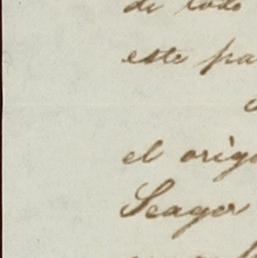 de todo
este pa
el orig
Seager